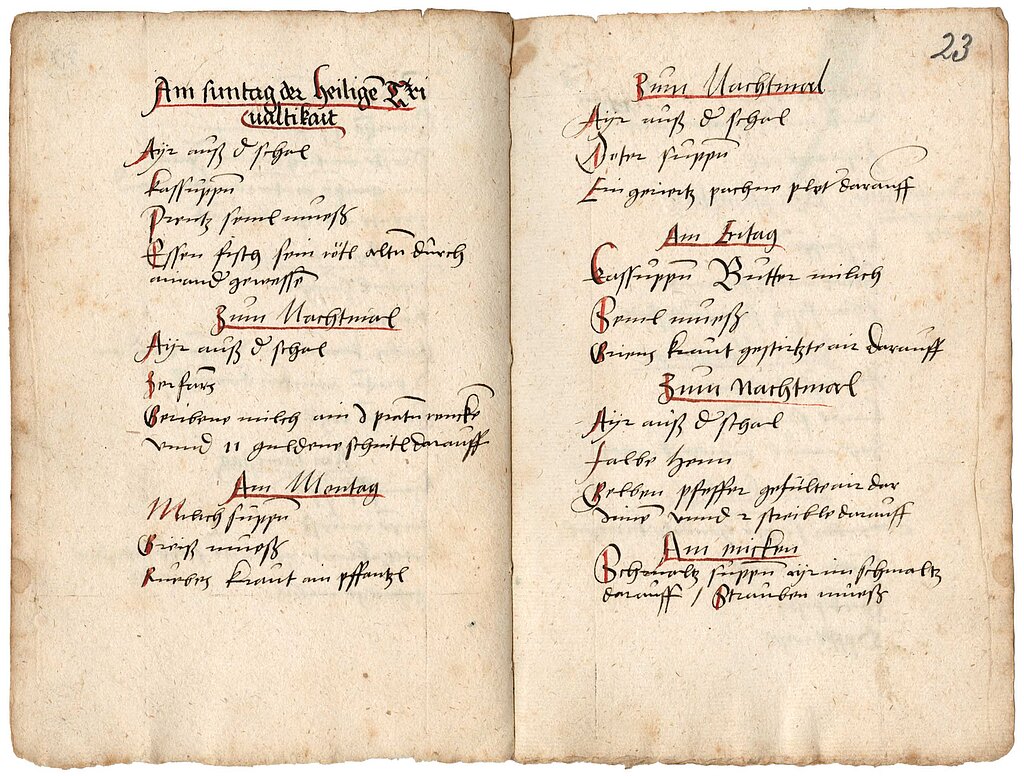 Am suntag der heiligē Tri
ualtikait
Ayr auß d schal
kassuppn
Prentz seml mueß
Essen fisch sein rötl altn durch
ainand gewessē
Zum Nachtmal
Ayr auß d schal
Geribene milch ain pratn rencke
vnnd 11 guldene schnitl darauff
Am Montag
Milich suppn
Grieß mueß
Rueben kraut ain pffantzl
23
Zum Nachtmal
Ayr auß d schal
suppn
Ein geriertz pachne plet darauff
Am Eritag
Kassuppn Butter milich
Seml mueß
Griens kraut gestirtzte air darauff
Zum Nachtmal
Ayr auß d schal
falbe henn
Gelben pfeffer gefülte air dar
vnnd 2 streible darauff
Am micken
Schmaltz suppn ayr im schmaltz
darauff / Strauben mueß